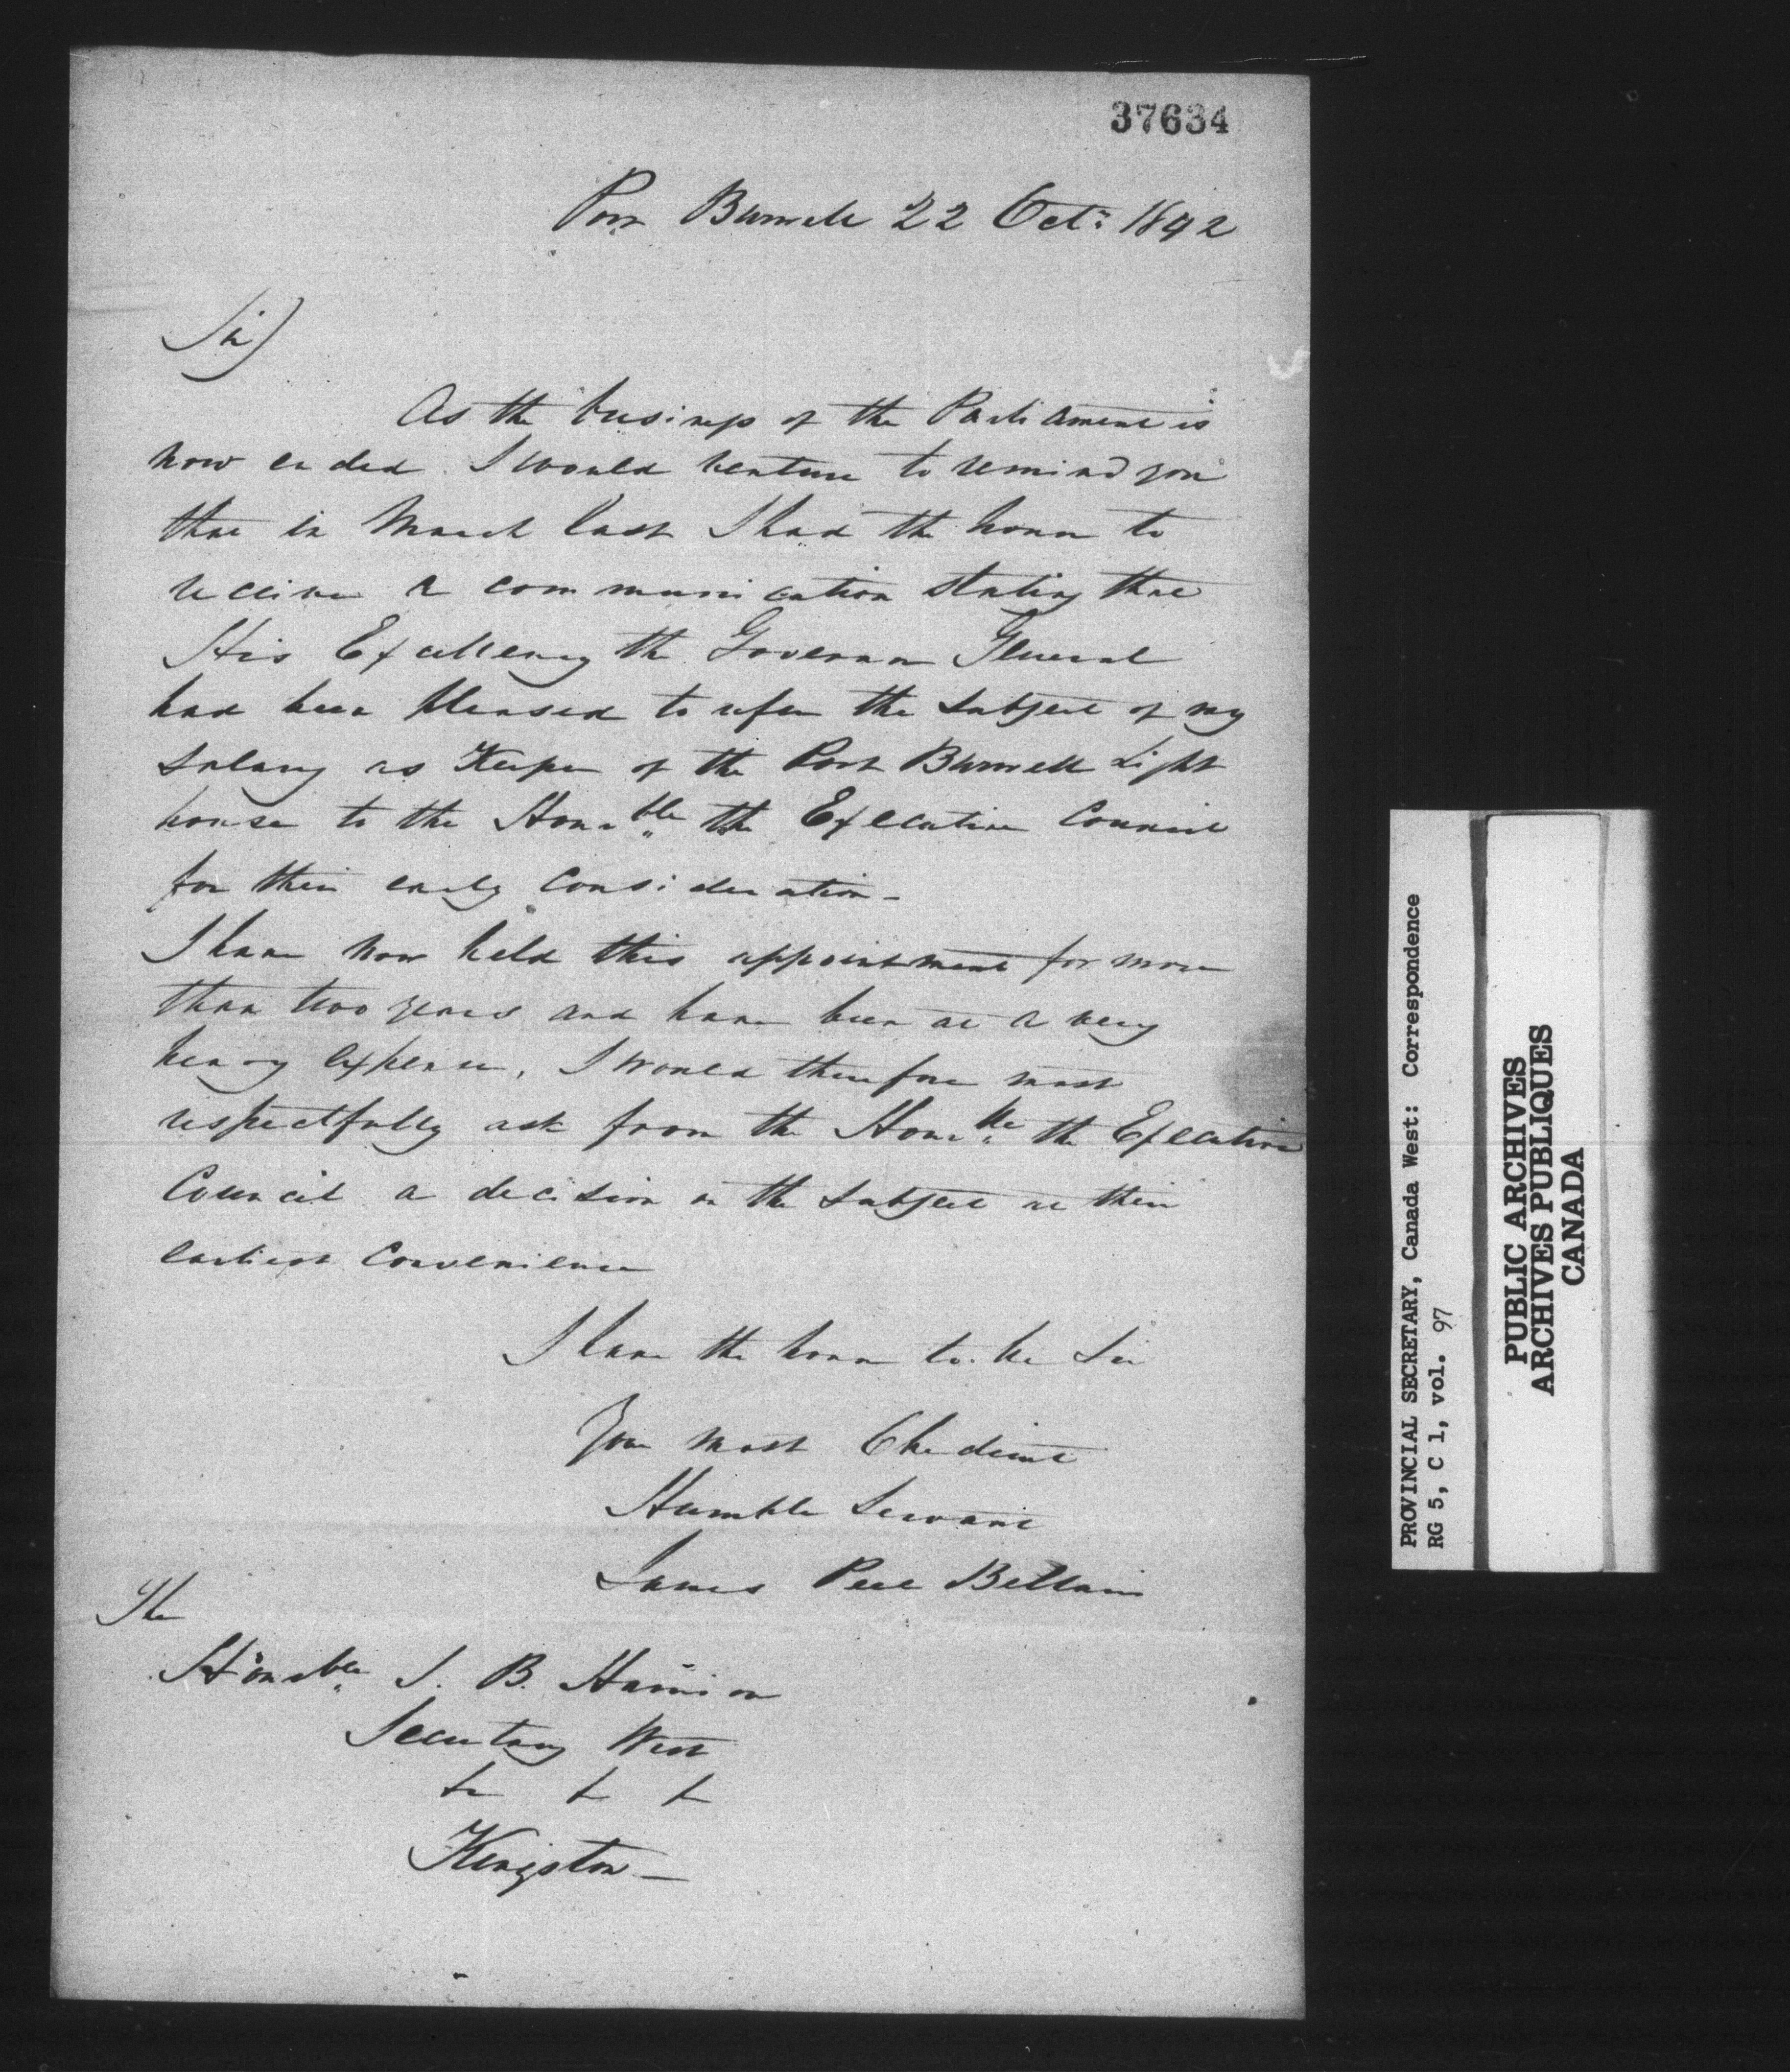 37634
Port Burwell 22 Oct: 1842
Sir)
As the business of the Parliament is
now ended I would venture to remind you
that in March last I had the honor to
receive a communication stating that
His Excellency the Governor General
had been pleased to refer the subject of my
salary as Keeper of the Port Burwell Light
house to the Honble the Executive Council
for their early consideration -
I have now held this appointment for more
than two years and have been at a very
heavy expense, I would therefore most
respectfully ask from the Honble the Executive
Council a decision on the subject at their
earliest convenience
I have the honor to be Sir
Your most Obedient
Humble Servant
James Peel Bellairs
The
Honble S. B. Harrison
Secretary West
&c & &
Kingston -
PROVINCIAL SECRETARY, Canada West: Correspondence
RG 5, C 1, vol. 97
PUBLIC ARCHIVES
ARCHIVES PUBLIQUES
CANADA